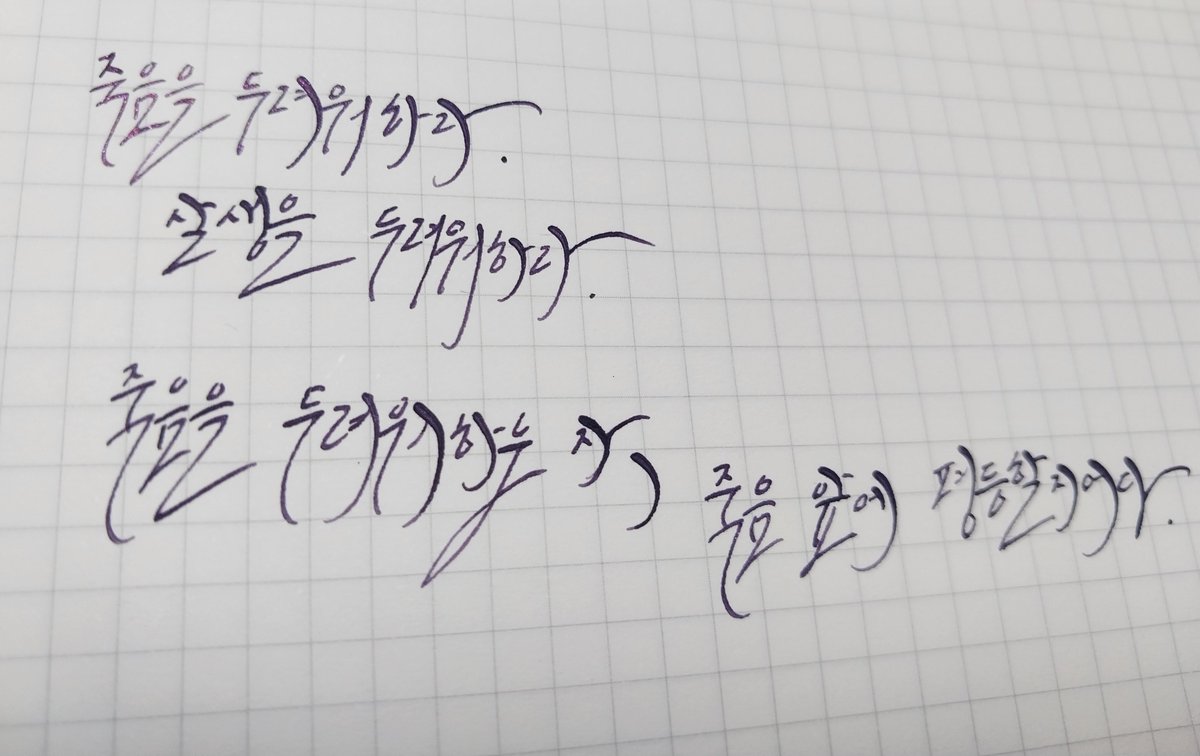 죽음을 두려워하라.
살생을 두려워하라.
죽음을 두려워하는 자,
죽음 앞에 평등할지어다.